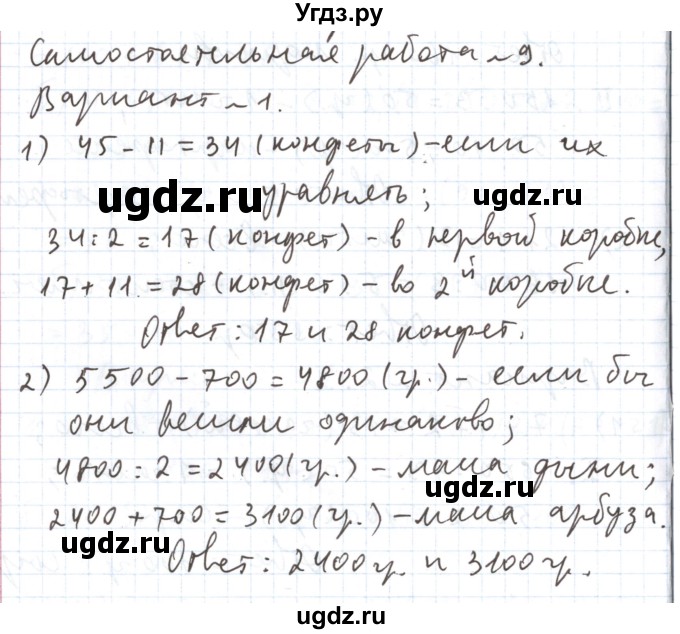 Угдз.ру
Самостоятельная работа №9.
Вариант №1.
1) 45 - 11 = 34 (конфеты) - если их
ugdz.ru уравнять; ugdz.ru
34 : 2 = 17 (конфет) - в первой коробке,
17 + 11 = 28 (конфет) - во 2й коробке.
Ответ: 17 и 28 конфет.
2) 5500 - 700 = 4800 (гр.) - если бы
они весили одинаково;
4800 : 2 = 2400 (гр.) - масса дыни;
ugdz.ru
2400 + 700 = 3100 (гр.) - масса арбуза.
ugdz.ru
Ответ: 2400 гр. и 3100 гр.
ugdz.ru